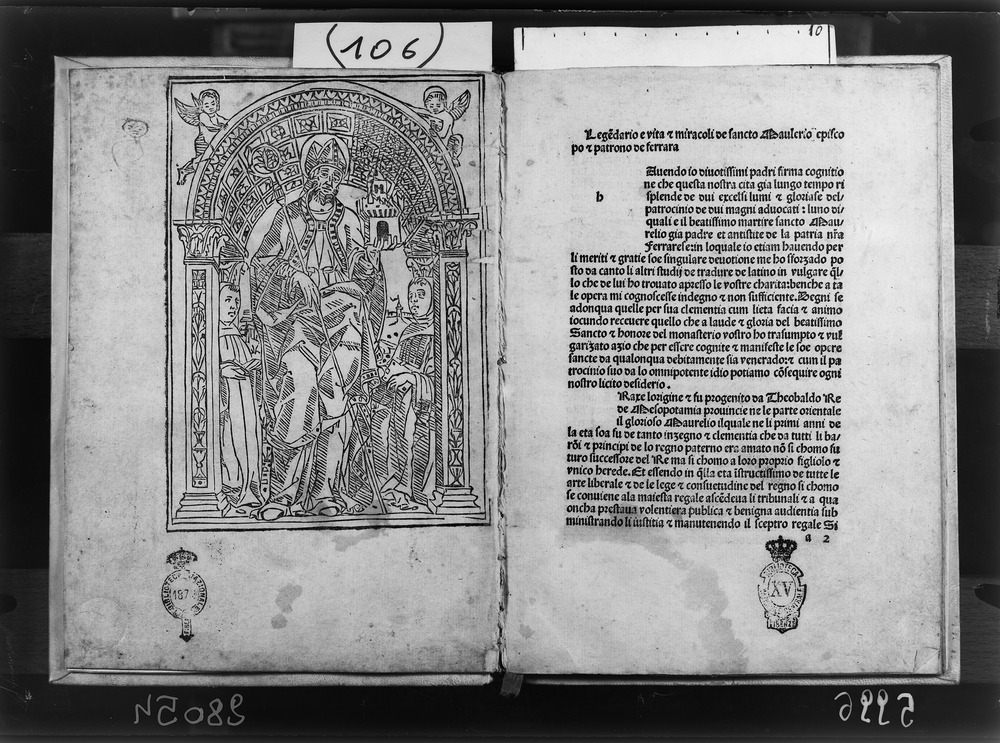 (106)
10
Legẽdario e vita ⁊ miracoli de sancto Maulerio episco
po ⁊ patrono de ferrara
b
Auendo io diuotissimi padri firma cognitio
ne che questa nostra cita gia lungo tempo ri
splende de dui excelsi lumi ⁊ gloriase del/
patrocinio de dui magni aduocati : luno di/
quali e il beatissimo martire sancto Mau/
relio gia padre et antistite de la patria nr̃a
Ferrarese: in loquale io etiam hauendo per
li meriti ⁊ gratie soe singulare deuotione me ho sforzado po
sto da canto li altri studij de tradure de latino in vulgare q̃l/
lo che de lui ho trouato apresso le vostre charita: benche a ta
le opera mi cognoscesse indegno ⁊ non sufficiente. Degni se
adonqua quelle per sua clementia cum lieta facia ⁊ animo
iocundo receuere quello che a laude ⁊ gloria del beatissimo
Sancto ⁊ honore del monasterio vostro ho trasumpto ⁊ vul
garizato azio che per essere cognite ⁊ manifeste le soe opere
sancte da qualonqua debitamente sia venerado: ⁊ cum il pa
trocinio suo da lo omnipotente idio potiamo cõsequire ogni
nostro licito desiderio.
Raxe lorigine ⁊ fu progenito da Theobaldo Re
de Mesopotamia prouincie ne le parte orientale
il glorioso Maurelio ilquale ne li primi anni de
la eta soa fu de tanto inzegno ⁊ clementia che da tutti li ba/
rõi ⁊ principi de lo regno paterno era amato nõ si chomo fu
turo successore del Re ma si chomo a loro proprio figliolo ⁊
vnico herede. Et essendo in q̃lla eta istructissimo de tutte le
arte liberale ⁊ de le lege ⁊ consuetudine del regno si chomo
se conuiene ala maiesta regale ascẽdeua li tribunali ⁊ a qua
oncha prestaua volentiera publica ⁊ benigna audientia sub
ministrando li iustitia ⁊ manutenendo il sceptro regale Si
a 2
BIBLIOTECA NAZIONALE
187
BIBLIOTECA
XV
FIRENZE
28054
5996